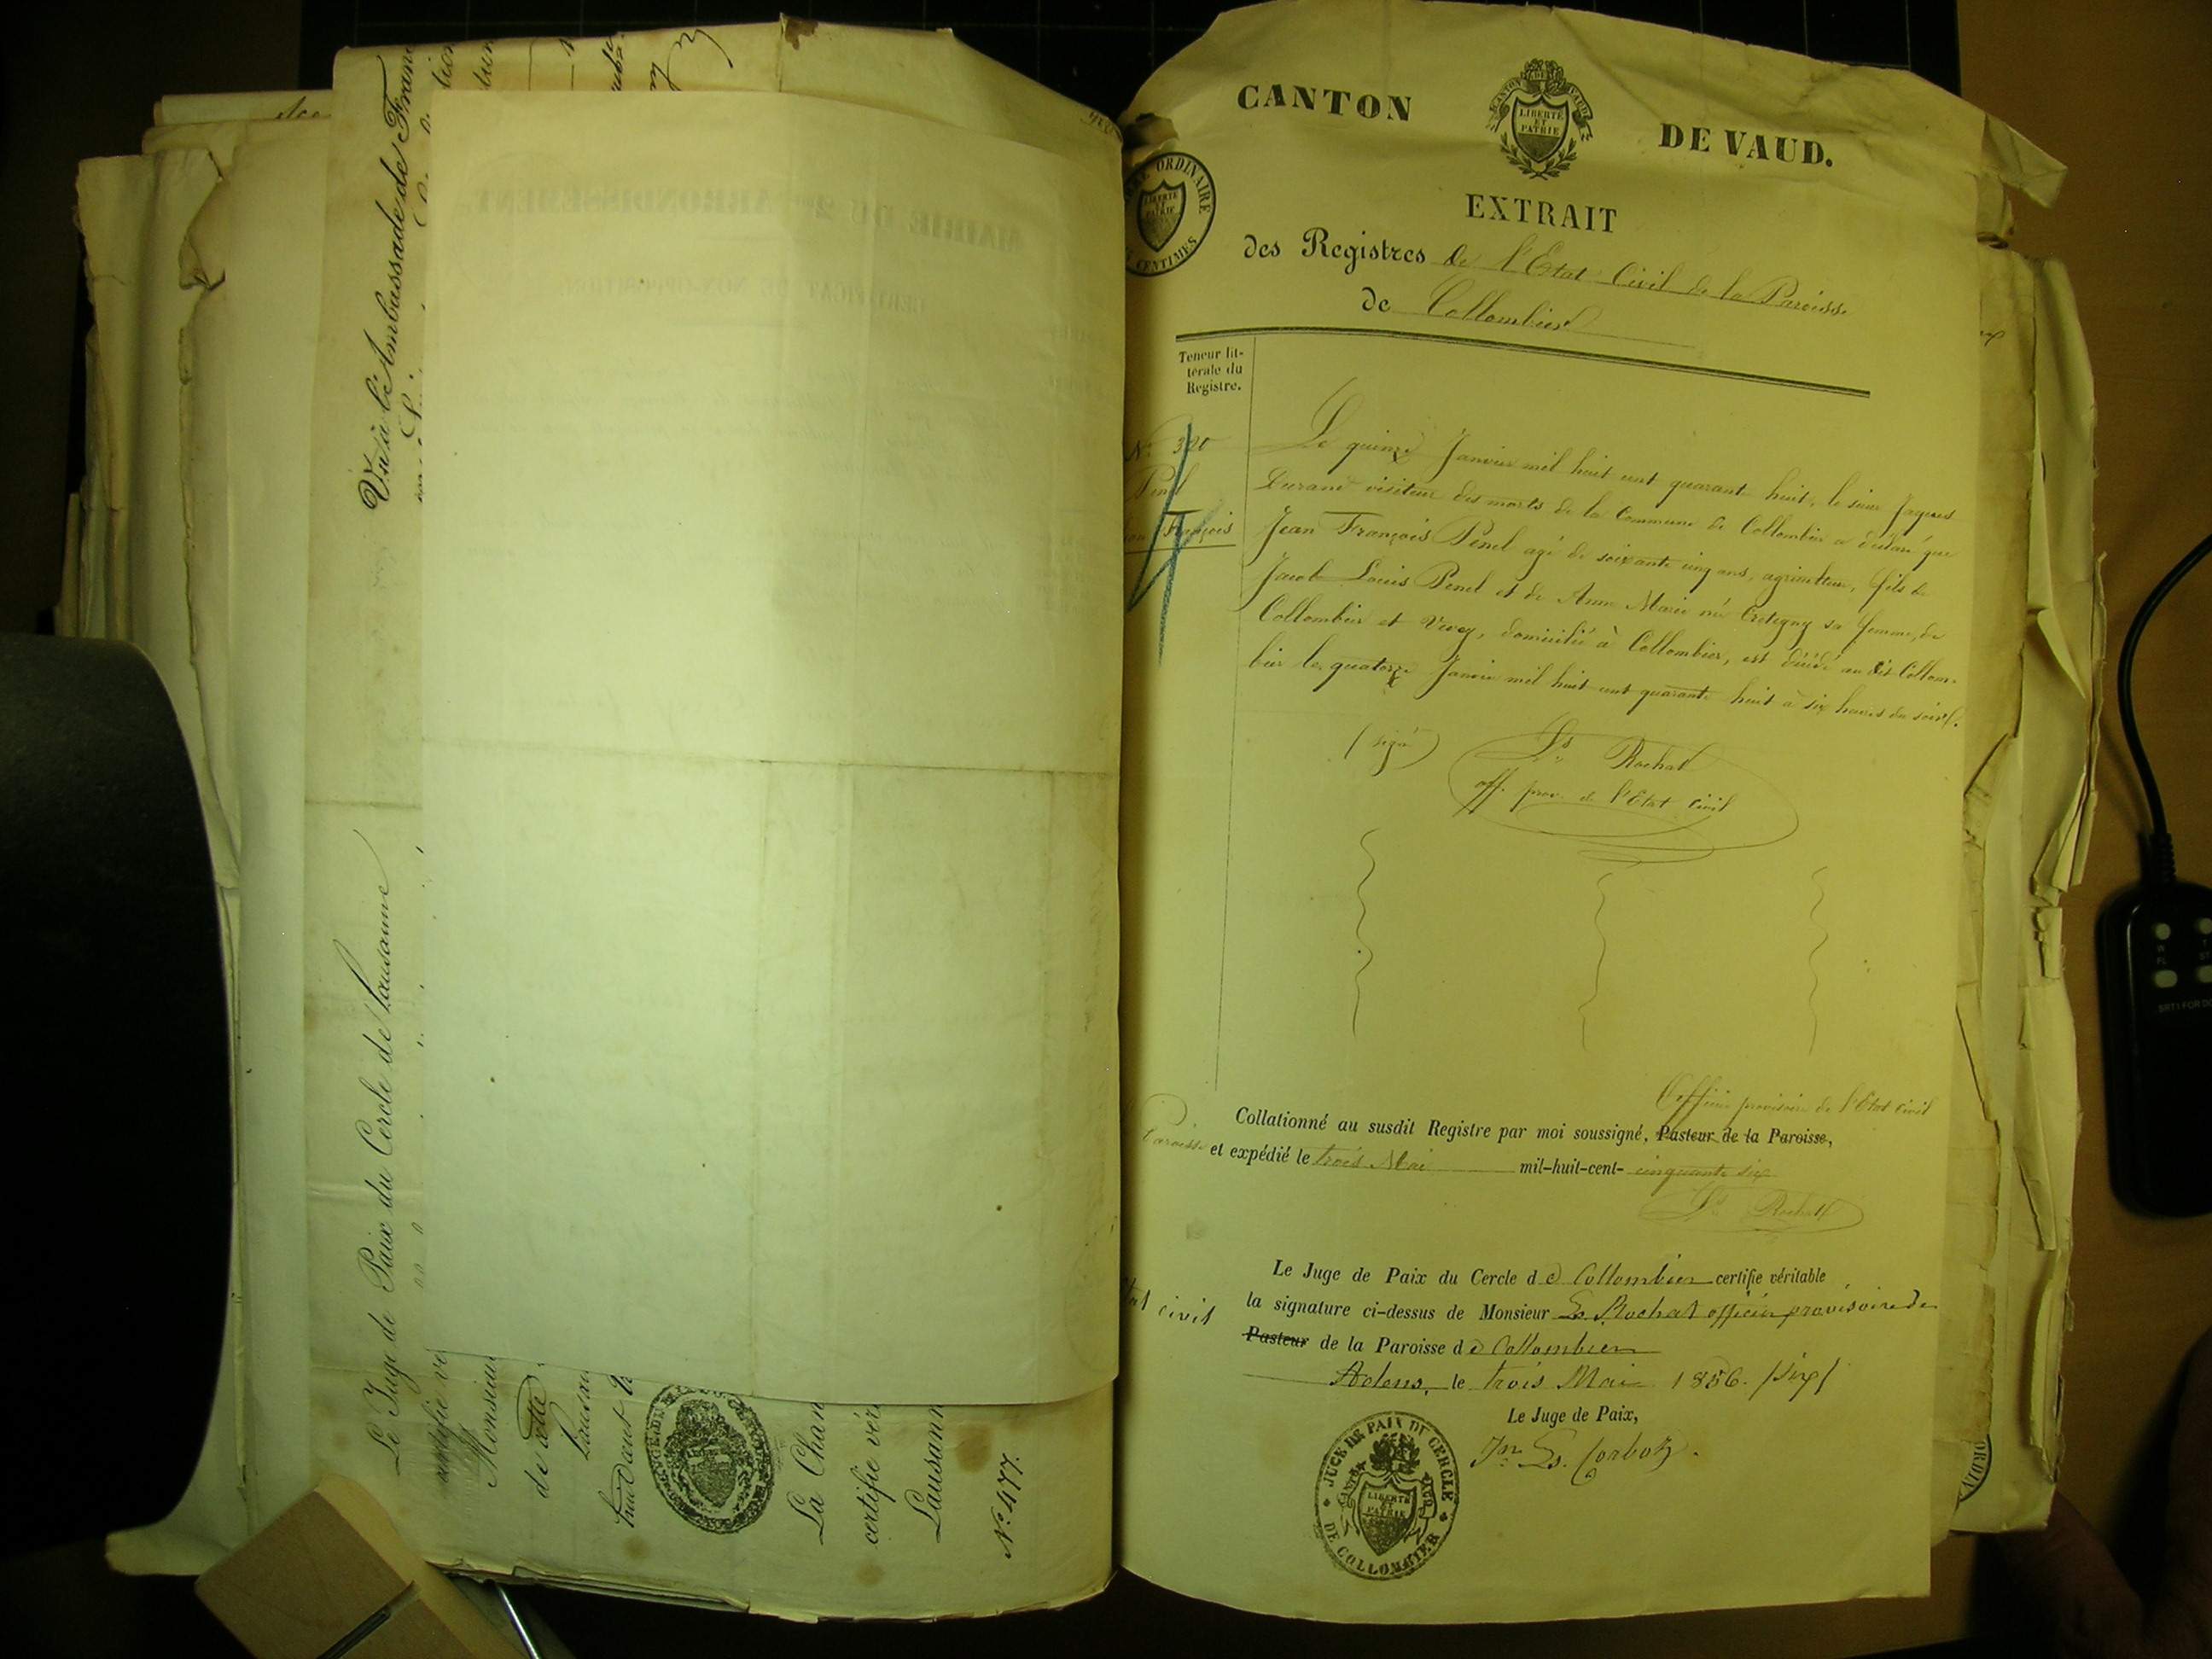 Vu à l'Ambassade de Fran
Le Juge de Paix du Cercle de Lausanne
certifie vé
Monsieur
de cette
Lausan
huit cent
La Chan
certifie véri
Lausann
N° 477.
CANTON DE VAUD.
CANTON DE VAUD
LIBERTÉ
ET
PATRIE
EXTRAIT
ORDINAIRE
LIBERTÉ
ET
PATRIE
CENTIMES
des Registres de l'Etat Civil de la Paroisse
de Collombier
Teneur lit-
térale du
Registre.
N° 320
Penel
François
Le quinze Janvier mil huit cent quarante huit, le sieur Jaques
Durand visiteur des morts de la Commune de Collombier a déclaré que
Jean François Penel agé de soixante cinq ans, agriculteur, fils de
Jacob Louis Penel et de Anne Marie née Cretegny sa femme, de
Collombier et Vevey, domicilié à Collombier, est décédé au dit Collom-
bier le quatorze Janvier mil huit cent quarante huit à six heures du soir.
(signé) Ls Rochat
off. prov. de l'Etat civil
Officier provisoire de l'Etat civil
Collationné au susdit Registre par moi soussigné, Pasteur de la Paroisse,
Paroisse et expédié le trois Mai mil-huit-cent- cinquante six
Ls Rochat
Le Juge de Paix du Cercle de Collombier certifie véritable
la signature ci-dessus de Monsieur Ls Rochat officier provisoire de
civil Pasteur de la Paroisse de Collombier
Aclens, le trois Mai 1856. /six/
Le Juge de Paix,
Jn Ls. Corboz.
JUGE DE PAIX DU CERCLE
DE COLLOMBIER
CANTON DE VAUD
LIBERTÉ
ET
PATRIE